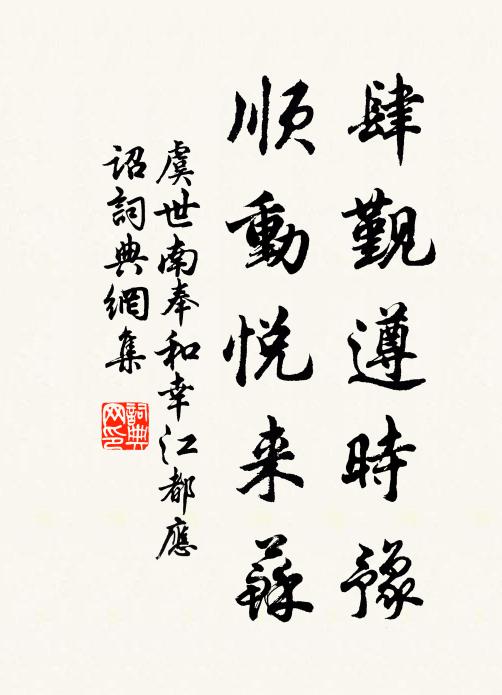 肆覲遵時豫
順動悦来蘇
虞世南奉和幸江都應
詔詞典網集
詞典
网印